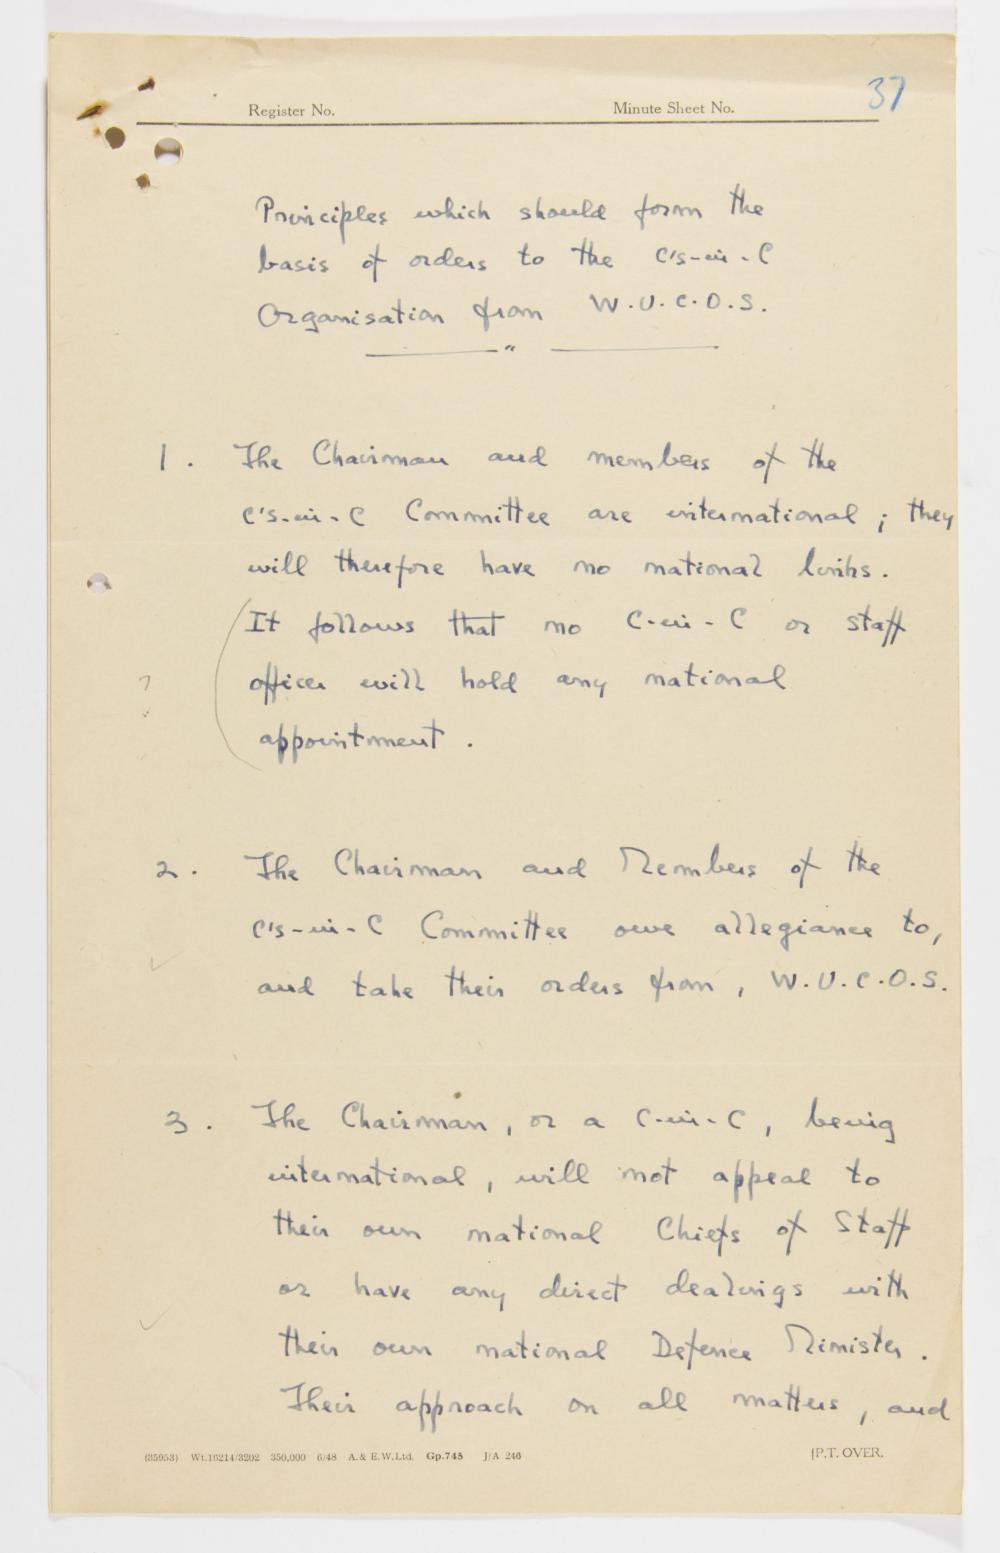 37
Register No. Minute Sheet No.
Principles which should form the
basis of orders to the C's-in-C
Organisation from W.U.C.O.S.
1. The Chairman and members of the
C's-in-C Committee are international; they
will therefore have no national links.
It follows that no C-in-C or staff
? officer will hold any national
appointment.
2. The Chairman and Members of the
C's-in-C Committee owe allegiance to,
and take their orders from, W.U.C.O.S.
3. The Chairman, or a C-in-C, being
international, will not appeal to
their own national Chiefs of Staff
or have any direct dealings with
their own national Defence Minister.
Their approach on all matters, and
(35953) Wt.16214/3202 350,000 6/48 A. & E.W.Ltd. Gp.745 J/A 246 [P.T. OVER.